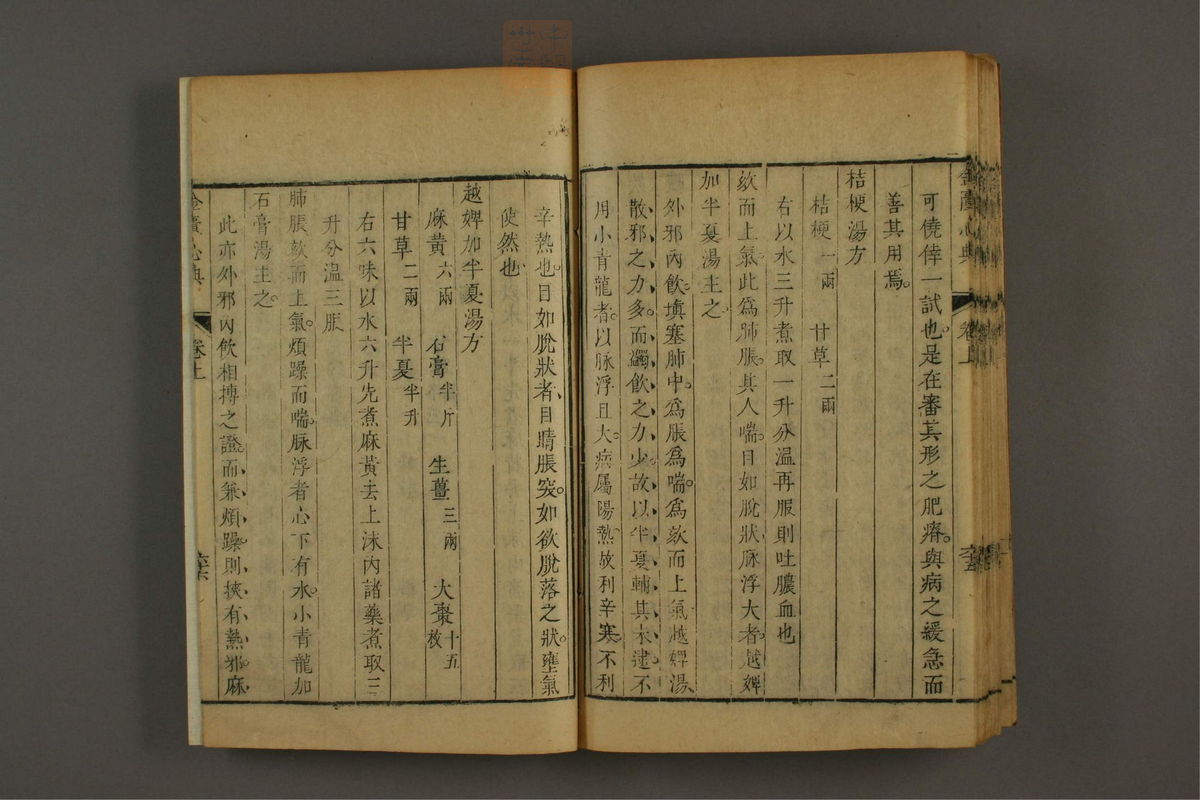 金匱心典 卷上
可僥倖一試也是在審其形之肥瘠與病之緩急而
善其用焉
桔梗湯方
桔梗一兩 甘草二兩
右以水三升煮取一升分温再服則吐膿血也
欬而上氣此為肺脹其人喘目如脫狀脉浮大者越婢
加半夏湯主之
外邪內飲填塞肺中為脹為喘為欬而上氣越婢湯
散邪之力多而蠲飲之力少故以半夏輔其未逮不
用小青龍者以脉浮且大病屬陽熱故利辛寒不利
辛熱也目如脫狀者目睛脹突如欲脫落之狀壅氣
使然也
越婢加半夏湯方
麻黃六兩 石膏半斤 生薑三兩 大棗十五枚
甘草二兩 半夏半升
右六味以水六升先煮麻黃去上沫內諸藥煮取三
升分温三服
肺脹欬而上氣煩躁而喘脉浮者心下有水小青龍加
石膏湯主之
此亦外邪內飲相搏之證而兼煩躁則挾有熱邪麻
金匱心典 卷上